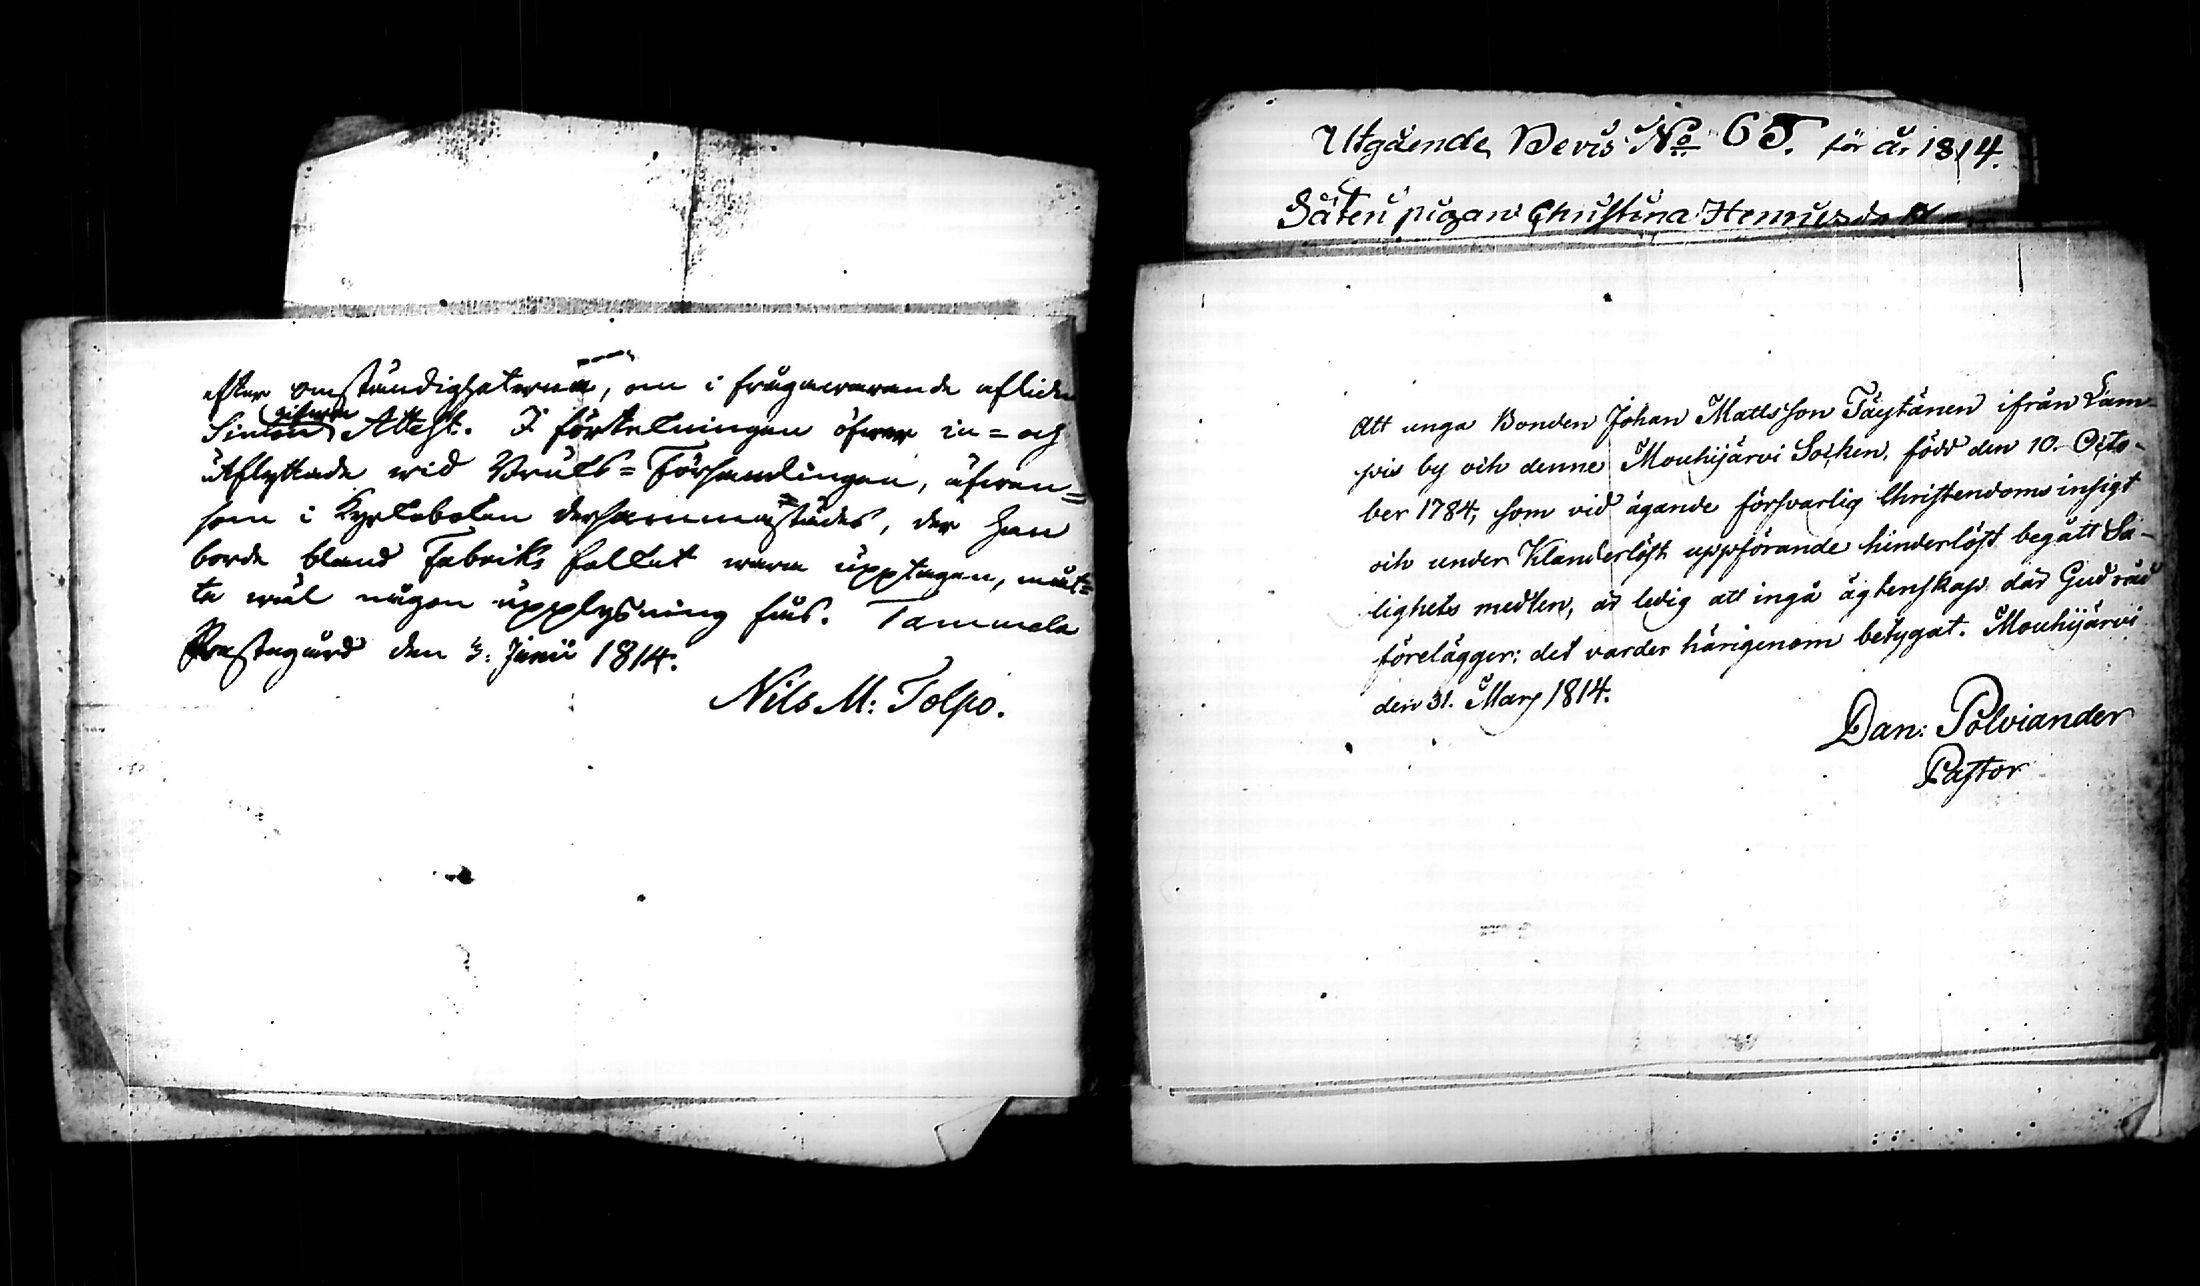 efter omständigheterna, om i frågavarande aflidne
Simon gifwen Attest. I förtekningen öfwer in= och
utflyttade wid Bruks=Församlingen, äfwen=
som i Kyrkoboken dersammastädes, der han
borde bland Fabriks folket wara upptagen, mås=
te wäl någon upplysning fås. Tammela
Prestegård den 3: Junii 1814.
Nils M: Tolpo.
Utgående Bevis No 65. för år 1814.
Säteri pigan Christina Henricsdr
Att unga Bonden Johan Mattsson Täytänen ifrån Lam-
pis by och denne Mouhijärvi Socken, född den 10. Octo-
ber 1784, som vid ägande försvarlig Christendoms insigt
och under Klanderlöst uppförande hinderlöst begått Sa-
lighets medlen, är ledig att ingå ägtenskap där Gud råd
förelägger: det varder härigenom betygat. Mouhijärvi
den 31. Mars 1814.
Dan: Polviander
Pastor